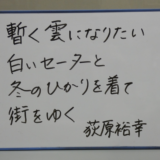 暫く雲になりたい
白いセーターと
冬のひかりを着て
街をゆく
荻原裕幸